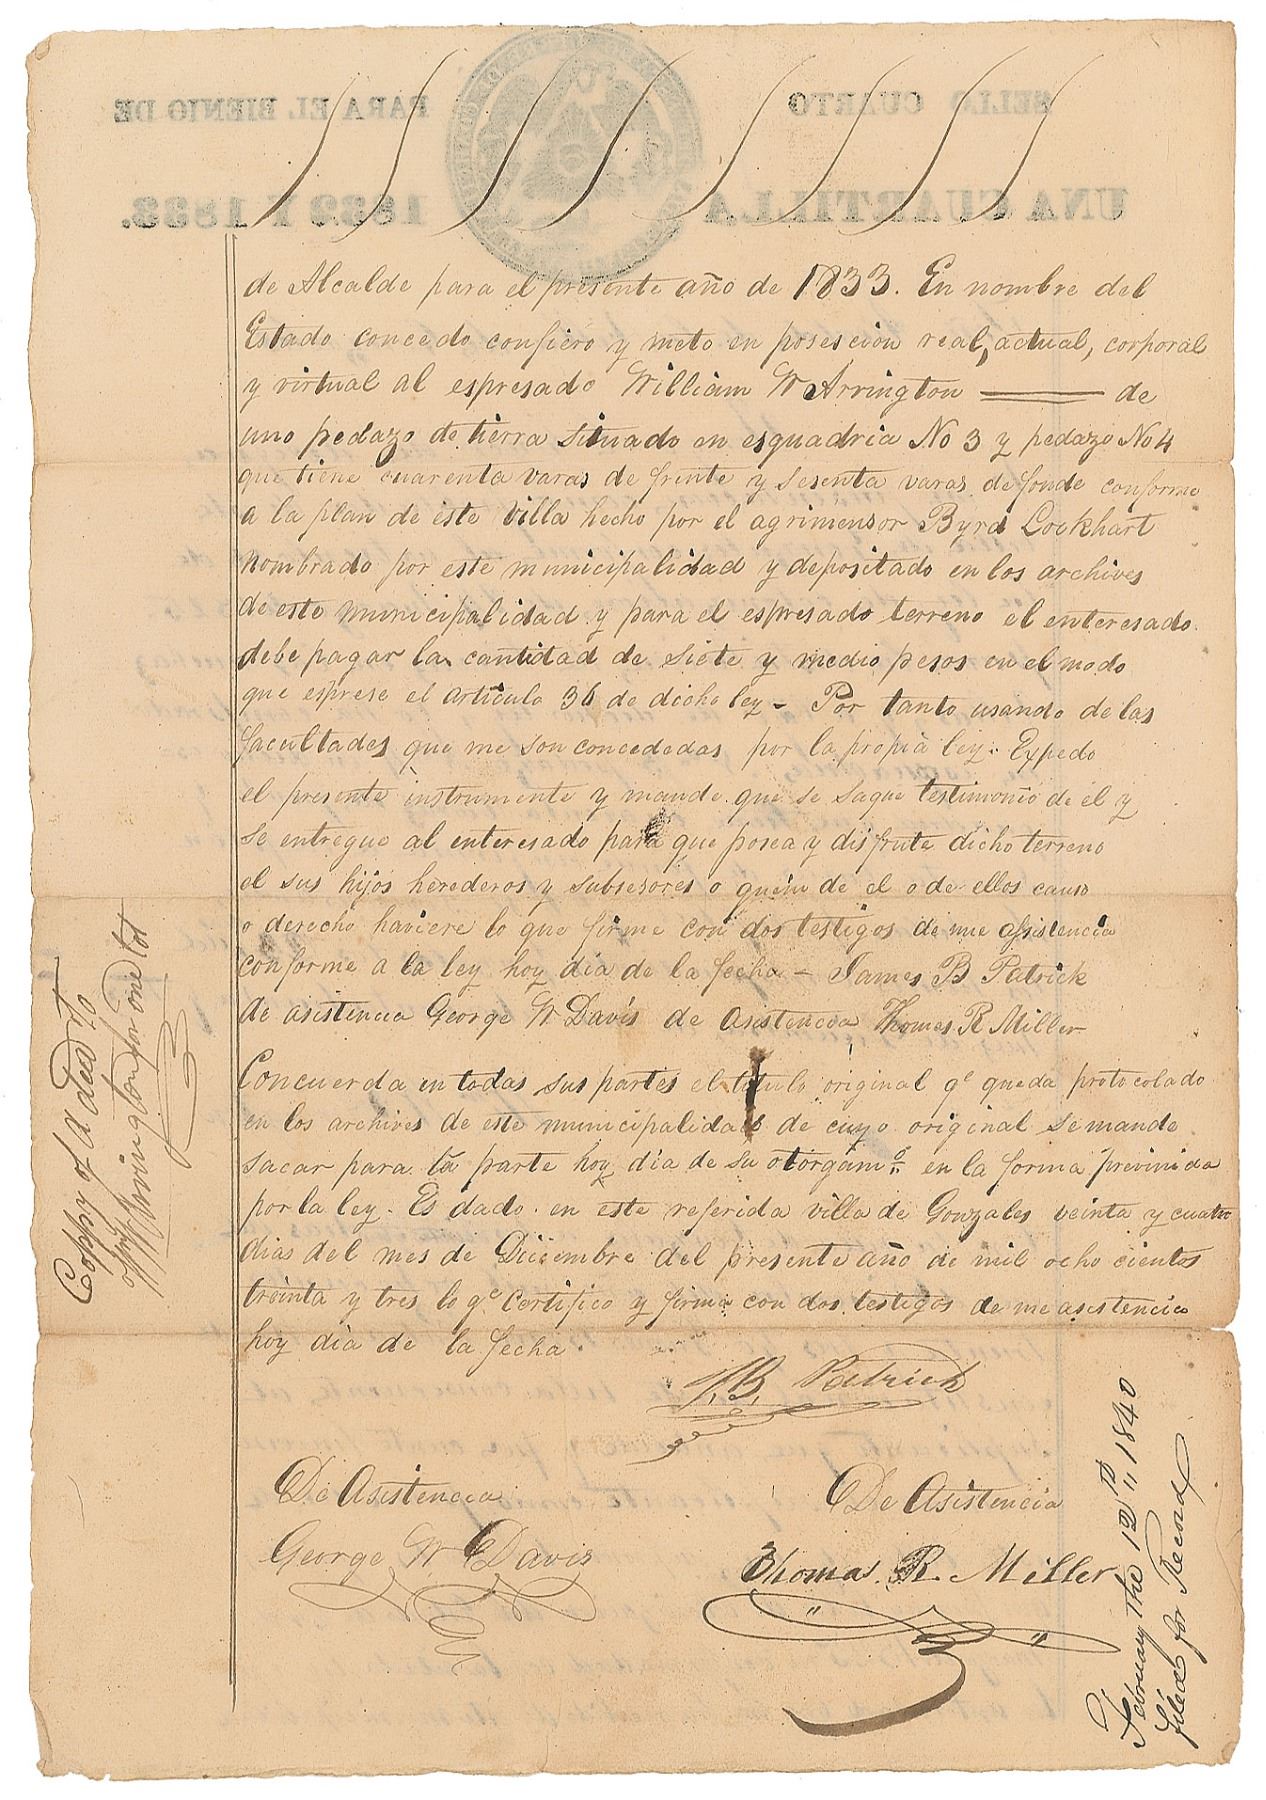 SELLO CUARTO PARA EL BIENIO DE
UNA CUARTILLA 1832 Y 1833.
de Alcalde para el presente año de 1833. En nombre del
Estado concedo confiero y meto en posescion real, actual, corporal
y virtual al espresado William W Arrington de
uno pedazo de tierra situado en esquadria No 3 y pedazo No 4
que tiene cuarenta varas de frente y sesenta varas de fonde conforme
a la plan de este Villa hecho por el agrimensor Byrd Lockhart
nombrado por este municipalidad y depositado en los archives
de esto municipalidad y para el espresado terreno el enteresado
debe pagar la cantidad de siete y medio pesos en el modo
que esprese el articulo 36 de dicho ley - Por tanto usando de las
facultades que me son concededas por la propia ley. Expedo
el presente instrumente y mande que se saque testimonio de el y
se entregue al enteresado para que posea y disfrute dicho terreno
el sus hijos herederos y subsesores o quien de el o de ellos causo
o derecho haviere lo que firme con dos testigos de mue assistencia
conforme a la ley hoy dia de la fecha - James B Patrick
de asistencia George W Davis de asistencia Thomas R Miller
Concuerda en todas sus partes el titulo original qe queda protocolado
en los archives de este municipalidad de cuyo original se mande
sacar para la parte hoy dia de su otorgamo en la forma previnida
por la ley. Es dado en este referida villa de Gonzales veinta y cuatro
dias del mes de Diciembre del presente año de mil ocho cientos
trointa y tres lo qe Certifico y firma con dos testigos de me asistencia
hoy dia de la fecha.
J. B. Patrick
De Asistencia
George W Davis
De Asistencia
Thomas R. Miller
Coppy of a deed to
Wm W Arrington for one lot
February the 12th 1840
filed for Record